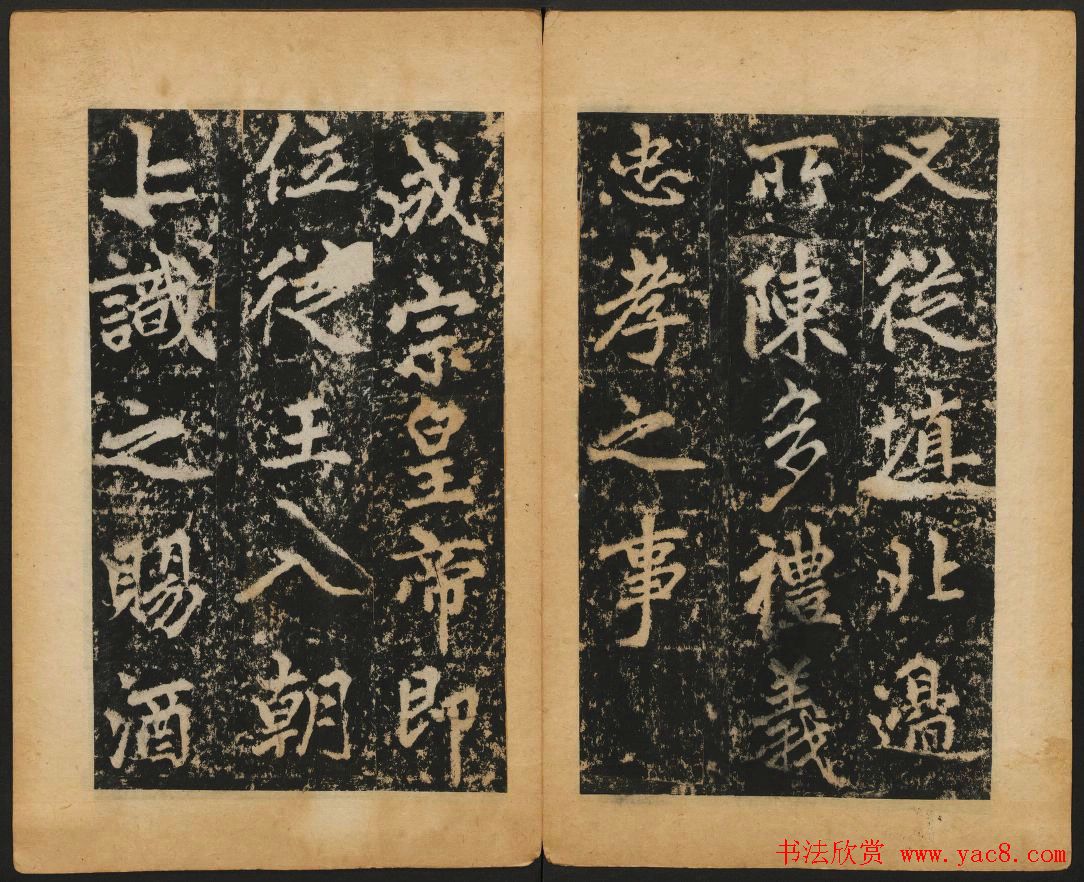 又從填北邊
所陳多禮義
忠孝之事
成宗皇帝即
位從王入朝
上識之賜酒
书法欣赏 www.yac8.com